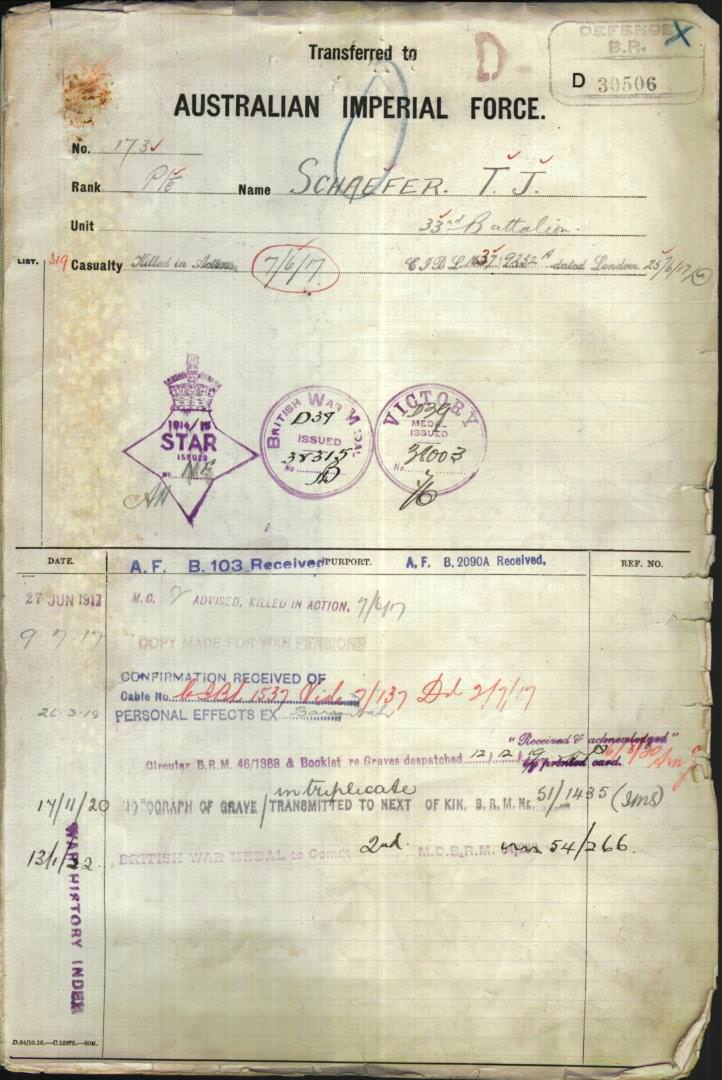 Transferred to
D
DEFENCE
B.R.
D 30506
X
AUSTRALIAN IMPERIAL FORCE.
No. 173
Rank Pte Name SCHAEFER. T. J.
Unit 33rd Battalion.
LIST. 319 Casualty Killed in Action 7/6/17 dated London 25/6/17
1914/15
STAR
ISSUED
No.
BRITISH WAR MEDAL
D39
ISSUED
38315
No.
VICTORY
D39
MEDAL
ISSUED
No.
DATE. A. F. B. 103 Received PURPORT. A. F. B. 2090A Received. REF. NO.
27 JUN 1917 M.C. 2 ADVISED, KILLED IN ACTION. 7/6/17
9 7 17 COPY MADE FOR WAR PENSIONS
CONFIRMATION RECEIVED OF
Cable No. 1537 7/137 Dd 2/7/17
PERSONAL EFFECTS EX
"Received & acknowledged"
Circular B.R.M. 46/1368 & Booklet re Graves despatched 12/12/19 by printed card.
in triplicate
17/11/20 OGRAPH OF GRAVE / TRANSMITTED TO NEXT OF KIN. B.R.M. No. 51/1435
13/1/22 BRITISH WAR MEDAL to 2nd. M.D.B.R.M. 54/266.
WAR HISTORY INDEX